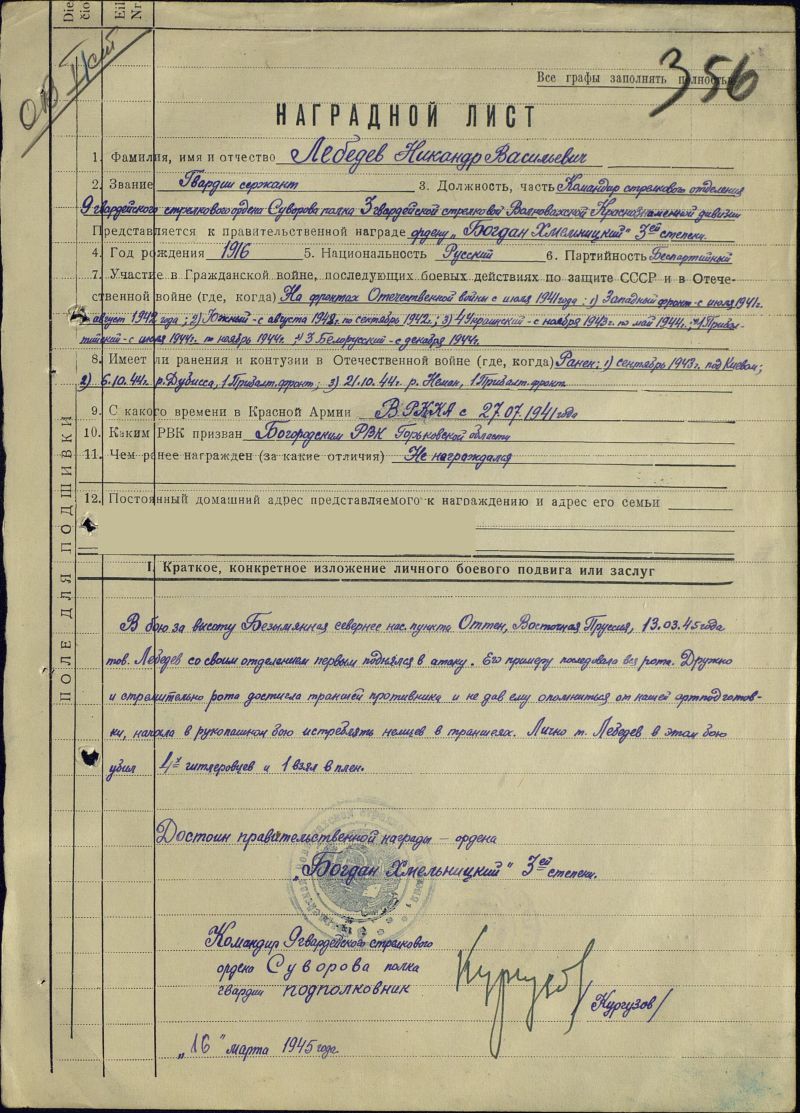 Все графы заполнять полностью
356
НАГРАДНОЙ ЛИСТ
1. Фамилия, имя и отчество Лебедев Никандр Васильевич
2. Звание Гвардии сержант 3. Должность, часть Командир стрелкового отделения
9 гвардейского стрелкового ордена Суворова полка 3 гвардейской стрелковой Волновахской Краснознаменной дивизии
Представляется к правительственной награде ордену „Богдан Хмельницкий" 3ей степени.
4. Год рождения 1916 5. Национальность Русский 6. Партийность Беспартийный
7. Участие в Гражданской войне, последующих боевых действиях по защите СССР и в Отече-
ственной войне (где, когда) На фронтах Отечественной войны с июля 1941 года: 1) Западный фронт-с июля 1941г.
август 1942 года; 2) Южный-с августа 1942г. по сентябрь 1942г.; 3) 4 Украинский-с ноября 1943г. по май 1944г.; 1 Прибал-
тийский-с июля 1944г. по ноябрь 1944г. 3 Белорусский-с декабря 1944г.
8. Имеет ли ранения и контузии в Отечественной войне (где, когда) Ранен: 1) сентябрь 1943г. под Киевом;
2) 6.10.44г. р. Дубисса, 1 Прибалт. фронт; 3) 21.10.44г. р. Неман, 1 Прибалт. фронт.
9. С какого времени в Красной Армии В РККА с 27.07.1941 года
10. Каким РВК призван Богородским РВК Горьковской области
11. Чем ранее награжден (за какие отличия) Не награждался
12. Постоянный домашний адрес представляемого к награждению и адрес его семьи
I. Краткое, конкретное изложение личного боевого подвига или заслуг
В бою за высоту Безымянная севернее нас. пункта Оттен, Восточная Пруссия, 13.03.45 года
тов. Лебедев со своим отделением первым поднялся в атаку. Его примеру последовала вся рота. Дружно
и стремительно рота достигла траншей противника и не дав ему опомниться от нашей артподготов-
ки, начала в рукопашном бою истреблять немцев в траншеях. Лично т. Лебедев в этом бою
убил 4х гитлеровцев и 1 взял в плен.
Достоин правительственной награды - ордена
„Богдан Хмельницкий" 3ей степени.
Командир 9 гвардейского стрелкового
ордена Суворова полка
гвардии подполковник
Кургузов
/Кургузов/
„16" марта 1945 года.
ПОЛЕ ДЛЯ ПОДШИВКИ
Die
čio
Eil
Nr.